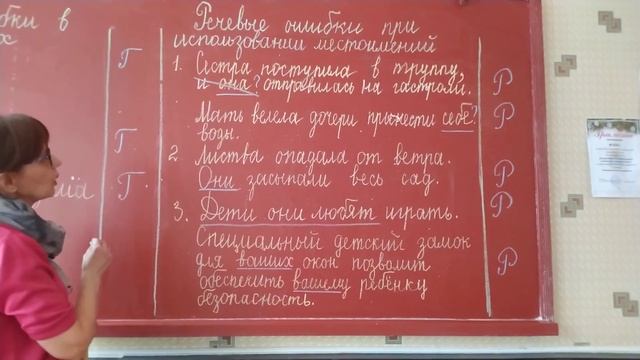 бки в
х
Г
Г
Г
ліа
Речевые ошибки при
использовании местоимений
1. Сестра поступила в труппу,
и она? отправилась на гастроли.
Мать велела дочери принести себе?
воды.
2 Листва опадала от ветра.
Они засыпали весь сад.
3. Дети они любят играть.
Специальный детский замок
для ваших окон позволит
обеспечить вашему ребёнку
безопасность.
Р
Р
Р
Р
Р